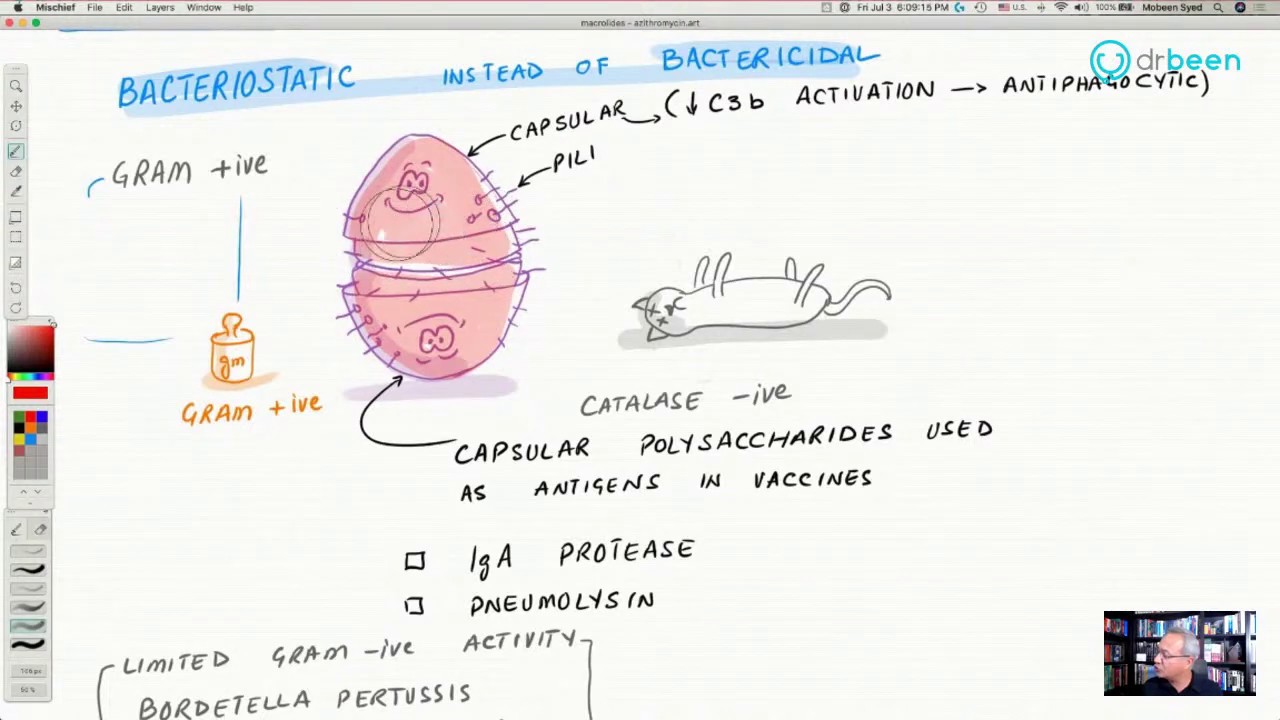 Mischief File Edit Layers Window Help
U.S. 100% Fri Jul 3 6:09:15 PM Mobeen Syed
macrolides - azithromycin.art
drbeen
BACTERIOSTATIC INSTEAD OF BACTERICIDAL
CAPSULAR (↓ C3b ACTIVATION → ANTIPHAGOCYTIC)
PILI
GRAM +ive
gm
GRAM +ive
CATALASE -ive
CAPSULAR POLYSACCHARIDES USED
AS ANTIGENS IN VACCINES
IgA PROTEASE
PNEUMOLYSIN
LIMITED GRAM -ive ACTIVITY
BORDETELLA PERTUSSIS